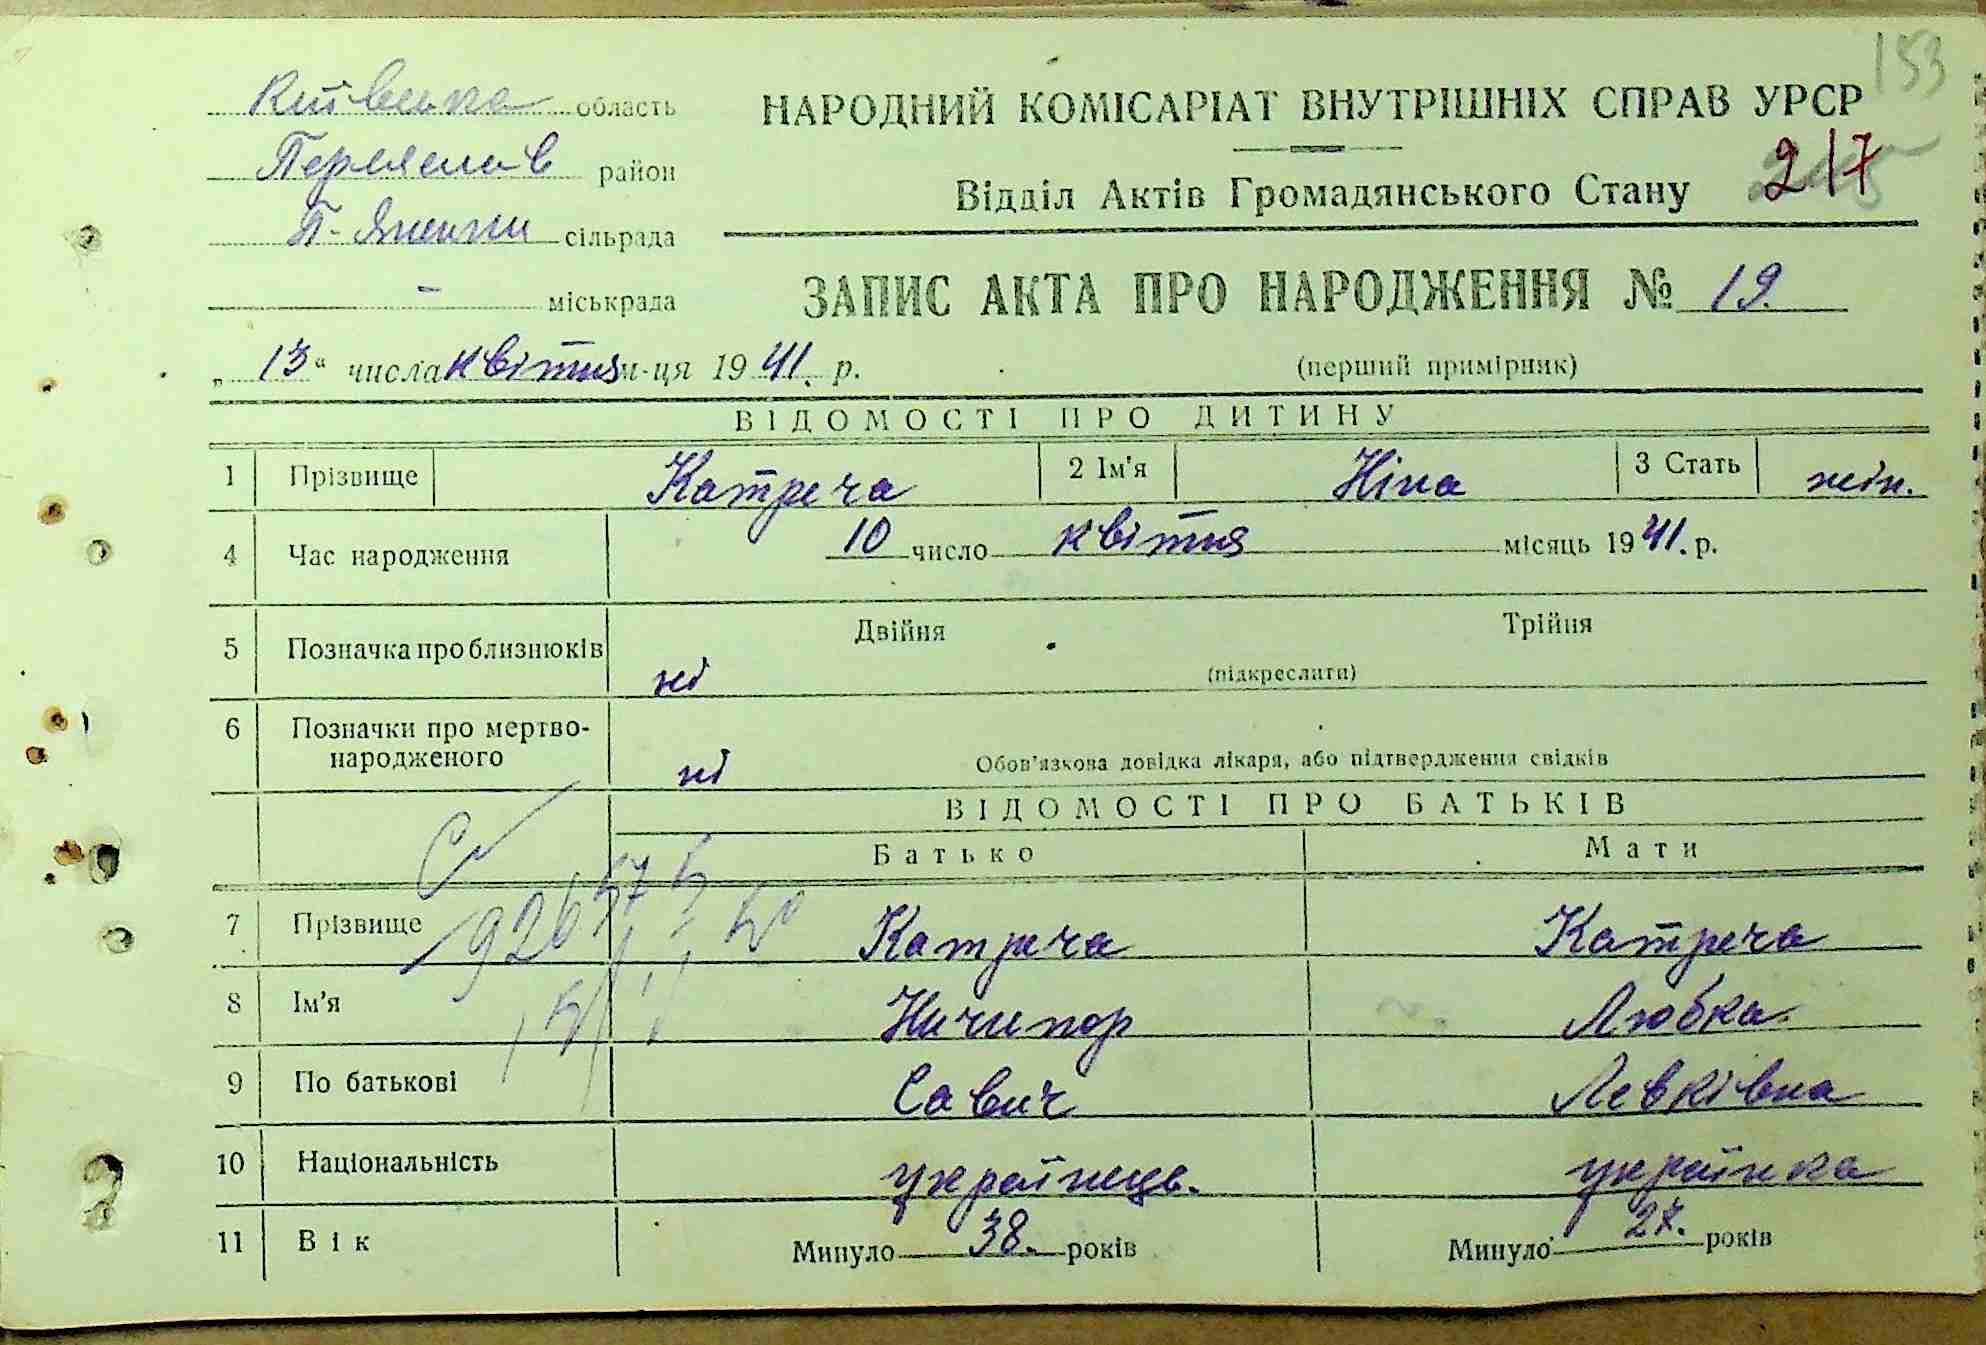 153
Київська область
НАРОДНИЙ КОМІСАРІАТ ВНУТРІШНІХ СПРАВ УРСР
Переяслав район
Відділ Актів Громадянського Стану 217
сільрада
- міськрада
ЗАПИС АКТА ПРО НАРОДЖЕННЯ № 19.
„ 13 “ числа квітня м-ця 1941. р.
(перший примірник)
ВІДОМОСТІ ПРО ДИТИНУ
1 Прізвище Катреча 2 Ім'я Ніна 3 Стать жін.
4 Час народження 10 число квітня місяць 1941. р.
5 Позначка про близнюків ні Двійня Трійня
(підкреслити)
6 Позначки про мертво-
народженого ні Обов'язкова довідка лікаря, або підтвердження свідків
ВІДОМОСТІ ПРО БАТЬКІВ
Батько Мати
7 Прізвище Катреча Катреча
8 Ім'я Ничипор Любка
9 По батькові Савич Левківна
10 Національність українець. українка
11 Вік Минуло 38. років Минуло 27. років